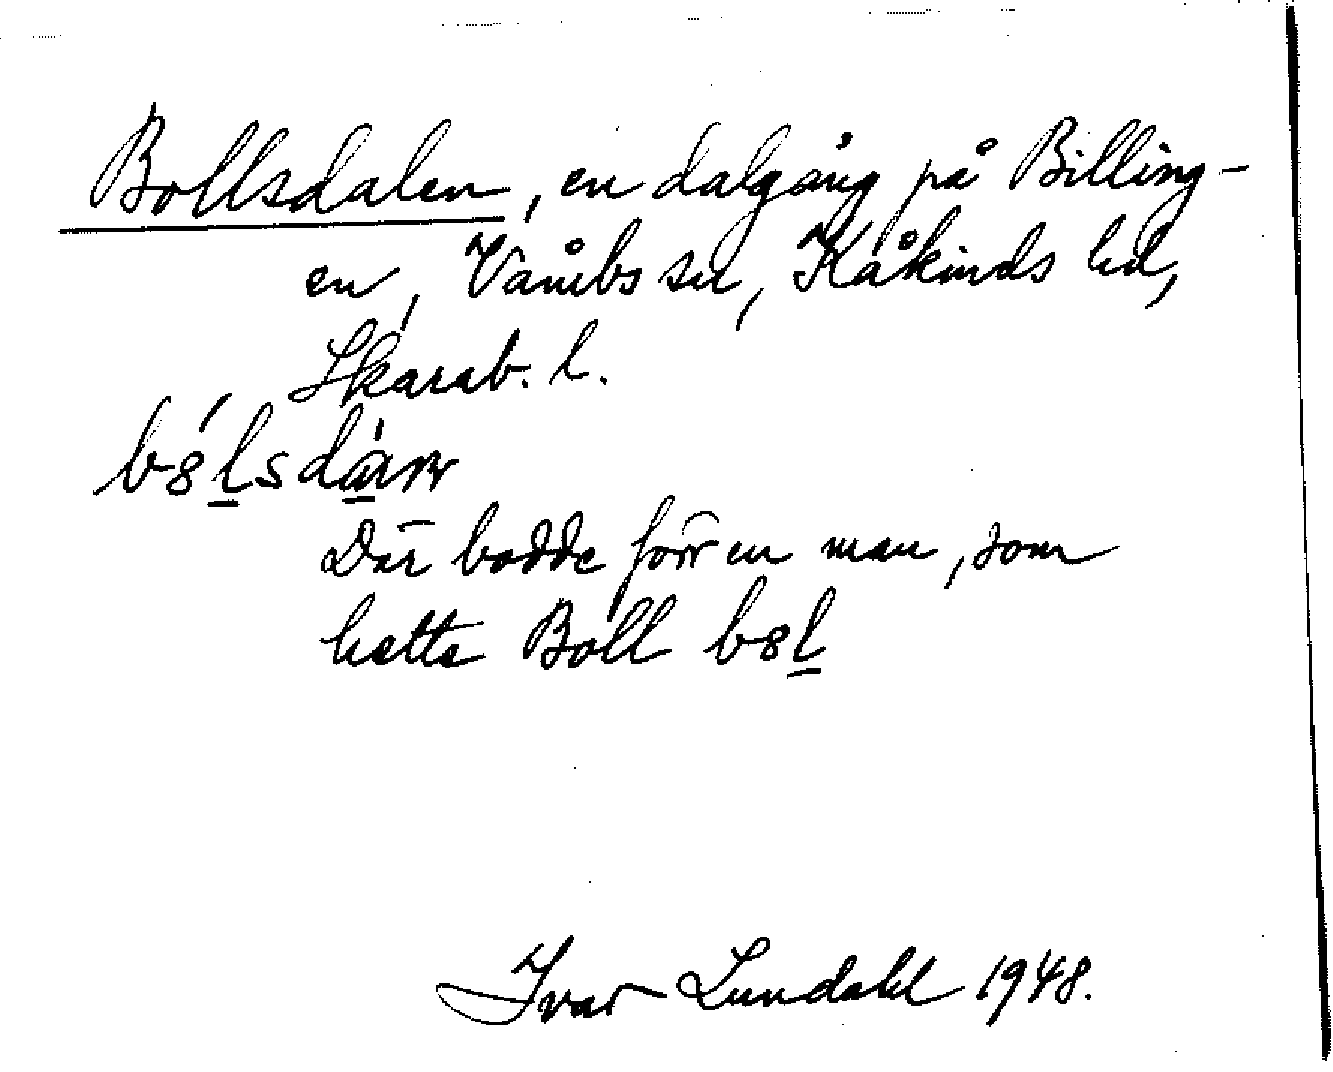 Bollsdalen, en dalgång på Billing-
en, Våmbs sn, Kåkinds hd,
Skarab. l.
Där bodde förr en man, som
hette Boll b8l
Ivar Lundahl 1948.